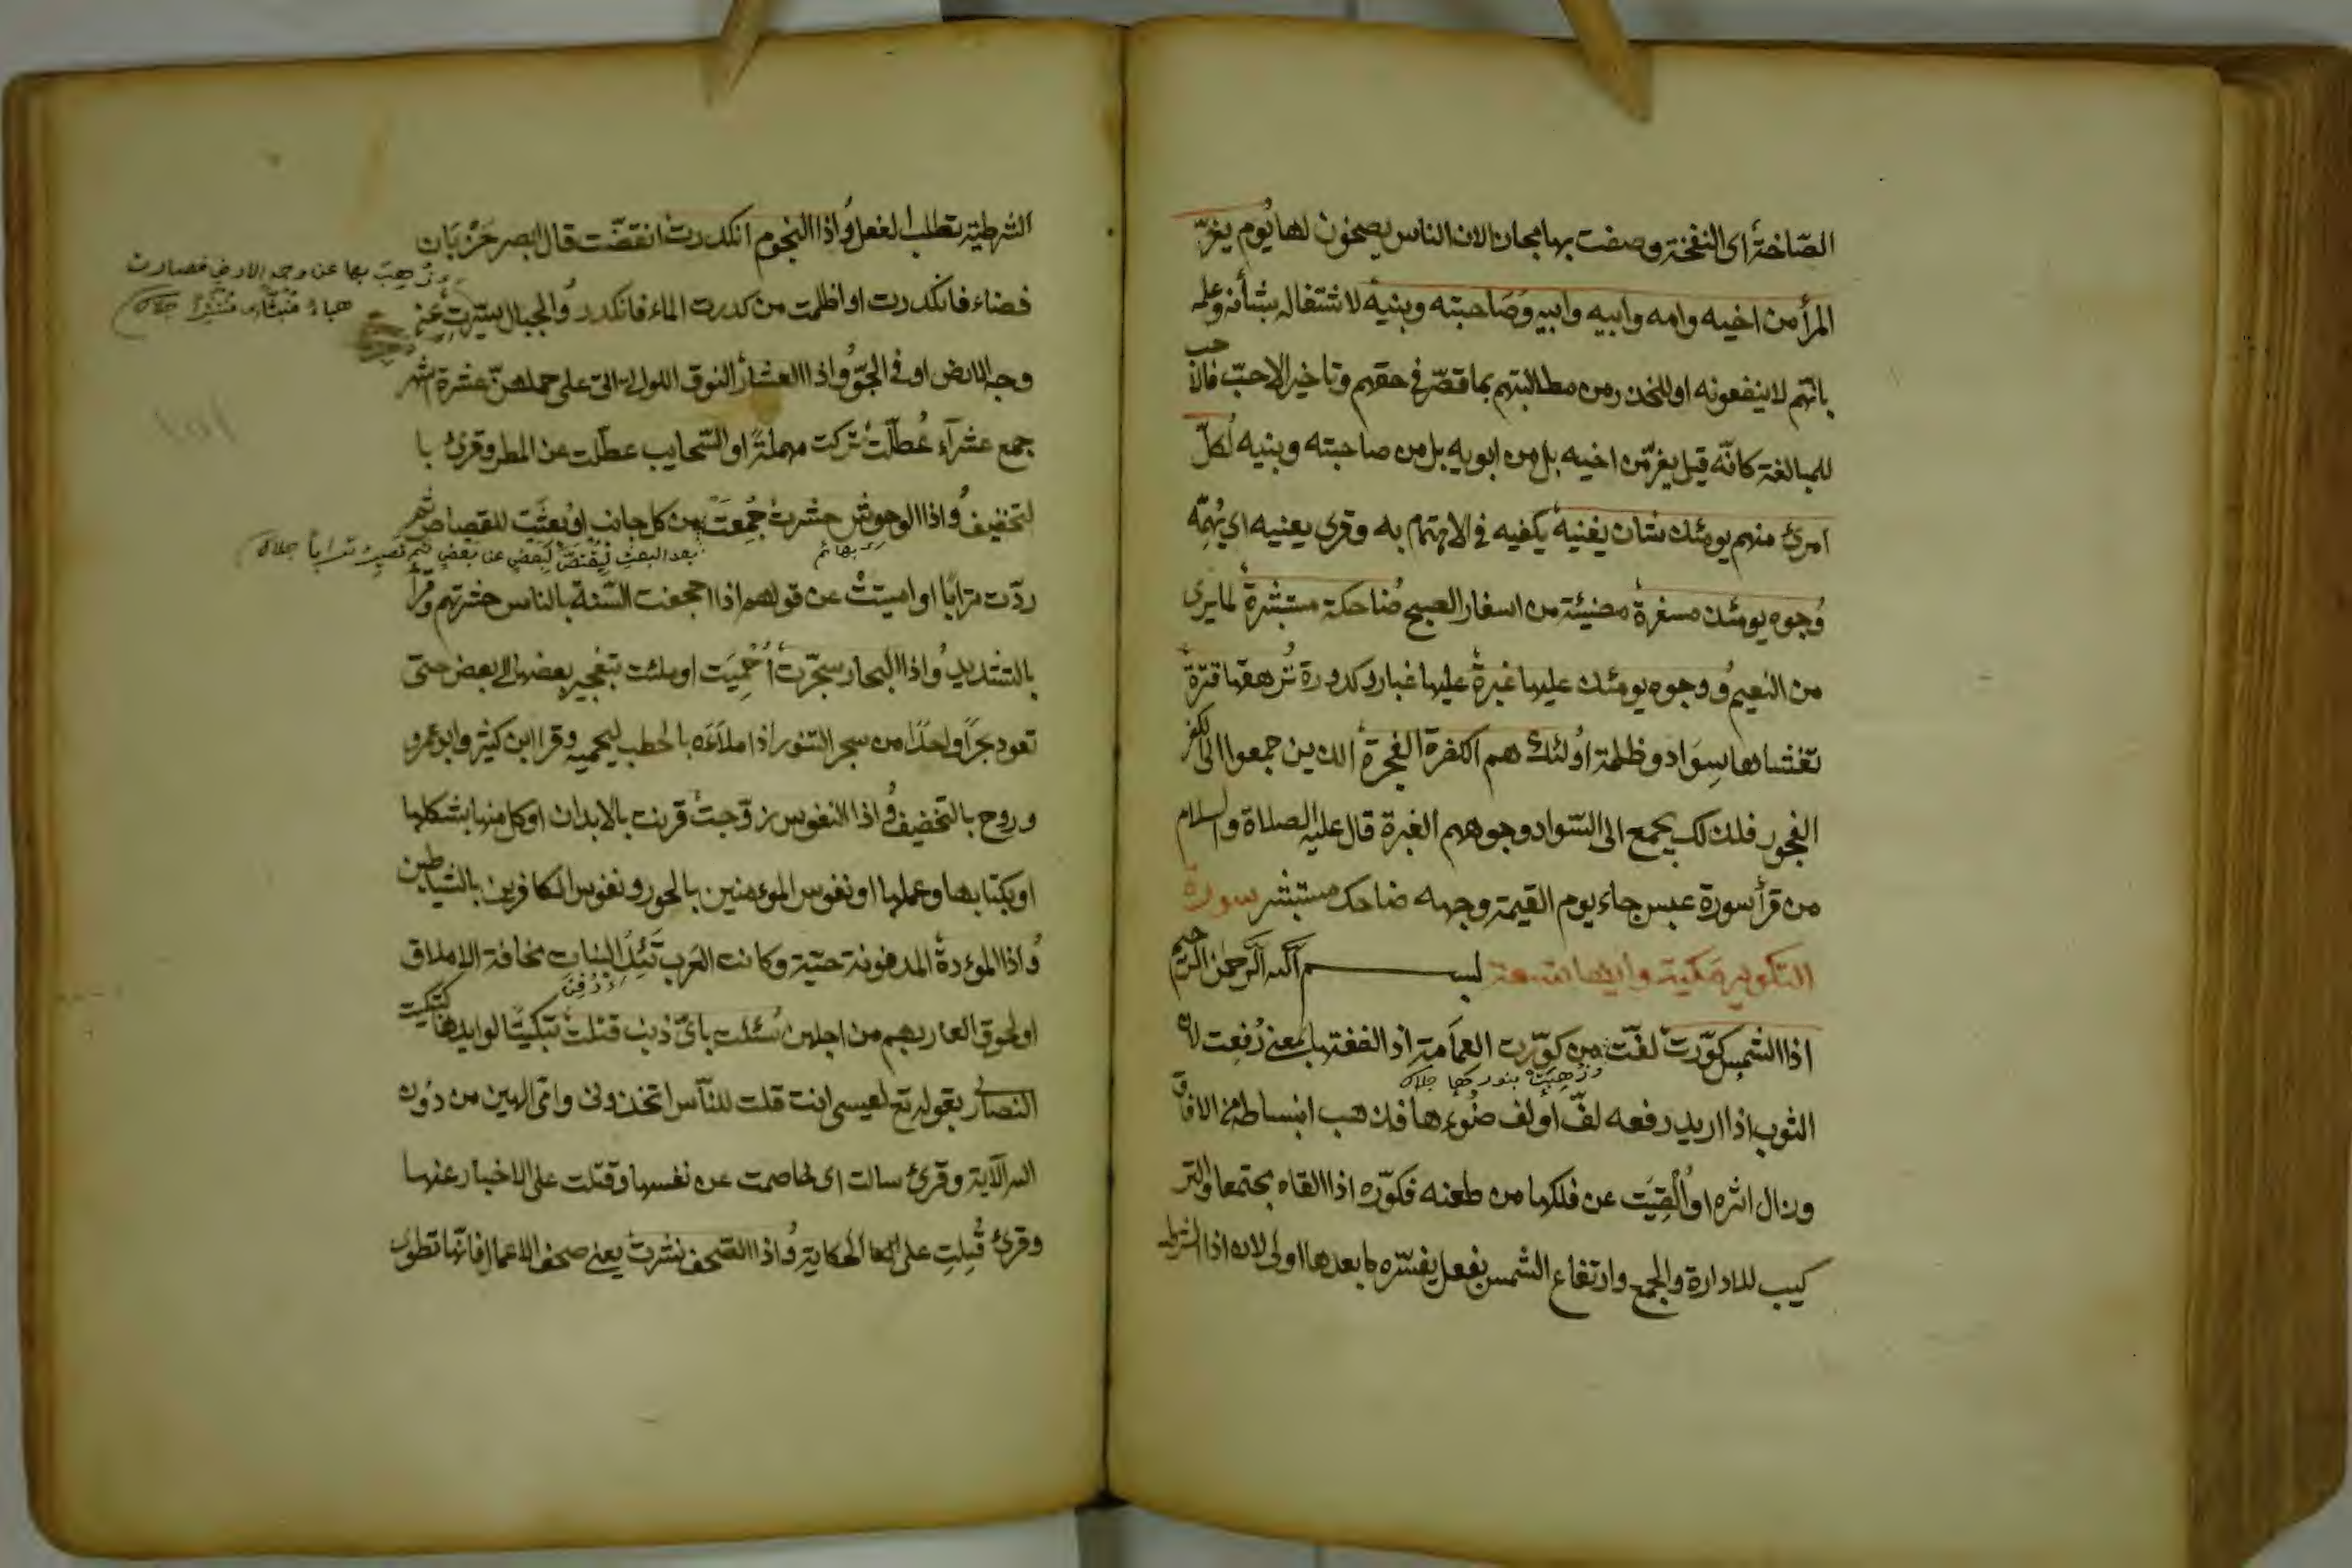 الصّاخة اى النفخة وصفت بها مجازا لان الناس يصخون لها يوم يفرّ
المرأ من اخيه وامه وابيه وابيه وصاحبته وبنيه لاشتغاله بشأنه وعلمه
بانهم لا ينفعونه او للحذر من مطالبتهم بما قصّر فى حقهم وتاخير الاحبّ فالا
حب
للمبالغة كانّه قيل يفرّ من اخيه بل من ابويه بل من صاحبته وبنيه لكلّ
امرئ منهم يومئذ شان يغنيه يكفيه فى الاهتمام به وقرى يعنيه اى يُهمّه
وُجوه يومئذ مسفرة مضيئة من اسفار الصبح ضاحكة مستبشرة لما يرى
من النعيم ووجوه يومئذ عليها غبرة عليها غبار وكدورة ترهقها قترة
تغشاها سواد وظلمة اولئك هم الكفرة الفجرة الذين جمعوا الى الكفر
الفجور فلذلك يجمع الى السّواد وجوههم الغبرة قال عليه الصلاة والسلام
من قرأ سورة عبس جاء يوم القيمة وجهه ضاحك مستبشر سورة
التكوير مكية وايها تسعة بسم الله الرحمن الرحيم
اذا الشمس كوّرت لفّت من كوّرت العمامة اذا لففتها بمعنى رُفعت لان
وذُهِبَتْ بنورها جلال
الثوب اذا اريد رفعه لفّ أو لف ضوءها فذهب انبساطه فى الافاق
وزال اثره او اُلقِيَت عن فلكها من طعنه فكوّره اذا القاه مجتمعا والتر
كيب للادارة والجمع وارتفاع الشمس بفعل يفسّره ما بعدها اولى لان اذا الشرطية
الشرطية تطلب الفعل واذا النجوم انكدرت انقضّت قال ابصر خربان
وذهب بها عن وجه الارض فصارت
هباءً منبثًا منتثرًا جلال
فضاء فانكدرت او اظلمت من كدرت الماء فانكدر والجبال سيّرت عن
وجه الارض او فى الجوّ واذا العشار النوق اللواتى اتى على حملهنّ عشرة اشهر
جمع عشرآء عُطّلت تركت مهملةً او السّحايب عطّلت عن المطر وقرئ با
لتخفيف واذا الوحوش حشرت جُمعت من كل جانب او بُعثت للقصاص ثم
بهائم
بعد البعث ليقتصّ لبعض عن بعض ثم تصير ترابًا جلال
ردّت ترابًا او اميتت من قولهم اذا اجحفت السّنة بالناس حشرتهم وقرأ
بالتشديد واذا البحار سجّرت أُحْمِيَت او ملئت بتفجير بعضها الى بعض حتى
تعود بحرًا واحدًا من سجر التنور اذا ملأَه بالحطب ليحميه وقرا ابن كثير وابو عمرو
وروح بالتخفيف واذا النفوس زوّجت قرنت بالابدان او كل منها بشكلها
او بكتابها وعملها او نفوس المؤمنين بالحور ونفوس الكافرين بالشياطين
واذا الموءدة المدفونة حيّة وكانت العرب تَئِدُ البنات مخافة الاملاق
او لحوق العار بهم من اجلهن سُئلت باىّ ذنب قتلت تبكيتًا لوايدها كتبكيت
النصارى بقوله تع لعيسى انت قلت للنّاس اتخذونى وامّى الهين من دون
الله الآية وقرئ سالت اى خاصمت عن نفسها وقتلت على الاخبار عنها
وقرئ قُتِلتِ على الحكاية واذا الصّحف نشرت يعنى صحف الاعمال فانها تطوى